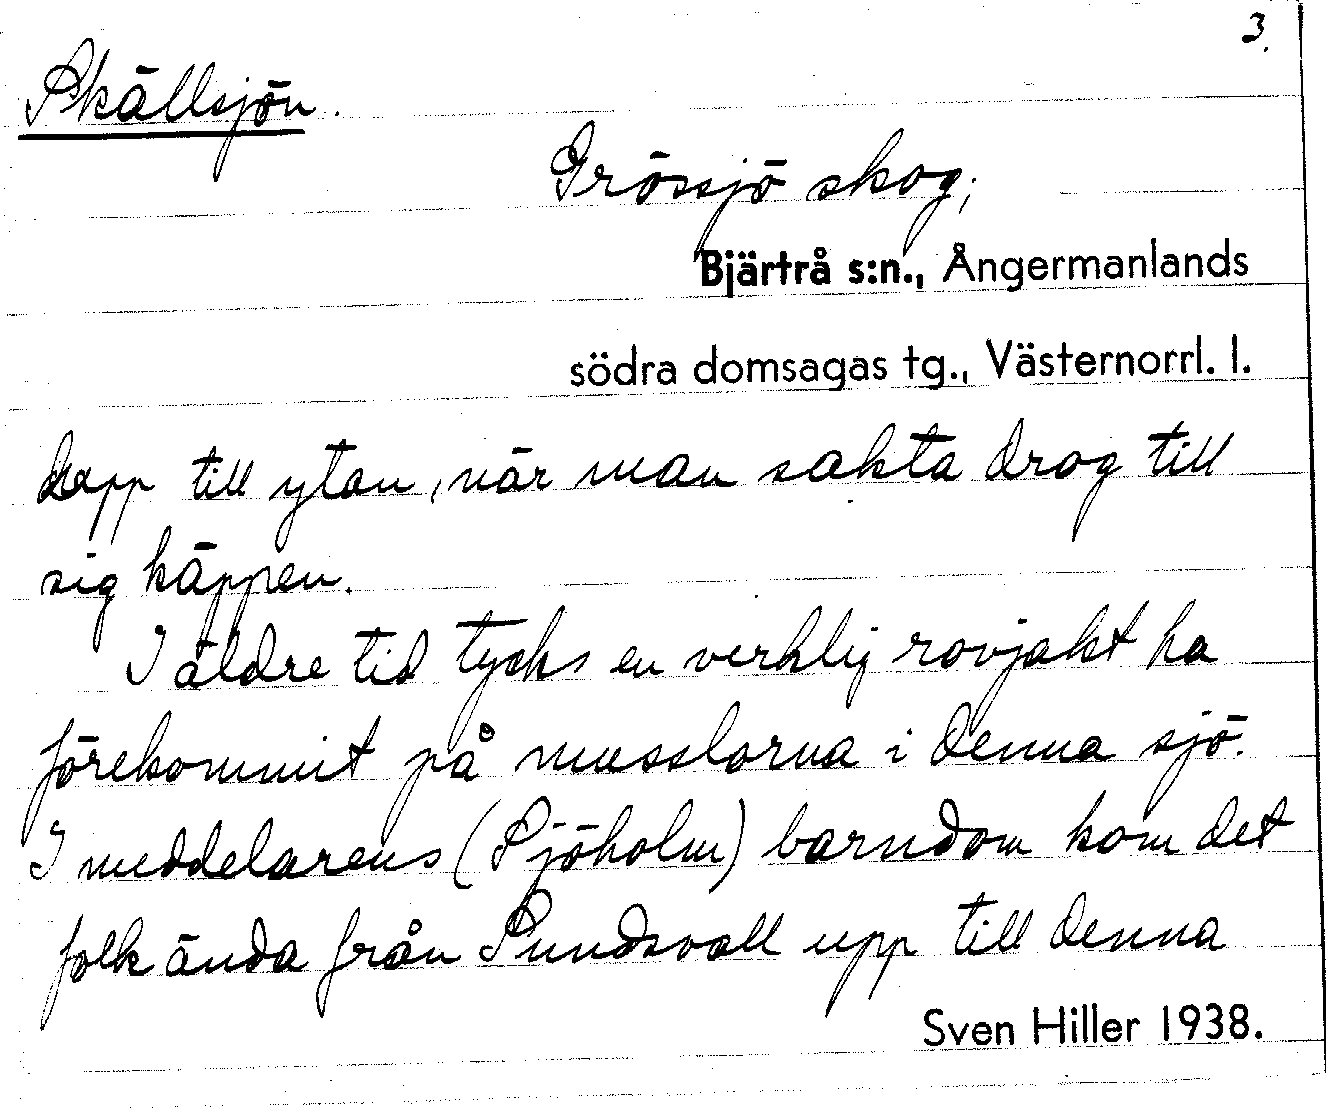 3.
Skällsjön.
Grössjö skog;
Bjärtrå s:n., Ångermanlands
södra domsagas tg., Västernorrl. l.
upp till ytan, när man sakta drog till
sig käppen.
I äldre tid tycks en verklig rovjakt ha
förekommit på musslorna i denna sjö.
I meddelarens (Sjöholm) barndom kom det
folk ända från Sundsvall upp till denna
Sven Hiller 1938.